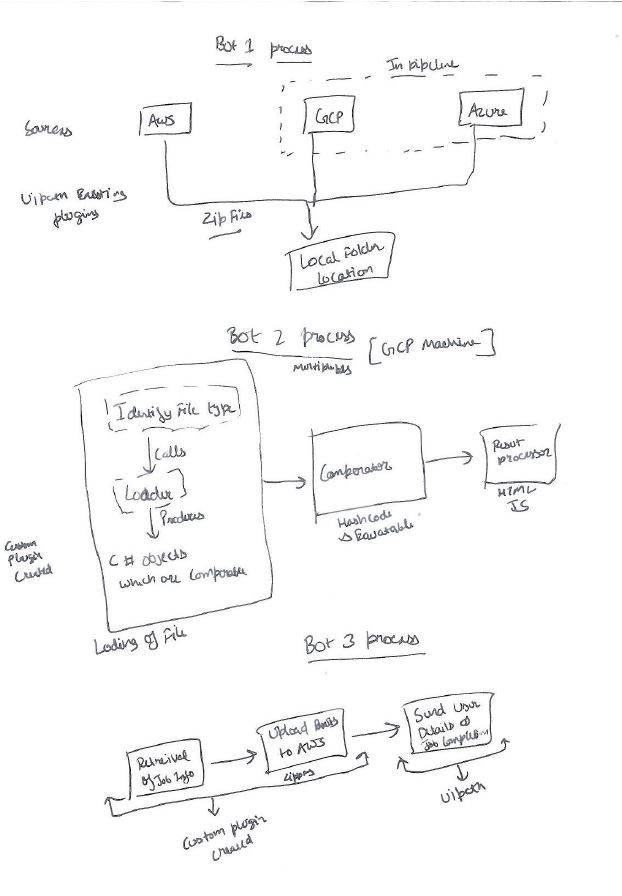 Bot 1 process
In pipeline
Sources
AWS
GCP
Azure
Uipath Existing
plugins
Zip Files
Local Folder
Location
Bot 2 process
[GCP Machine]
Identify File type
Calls
Loader
Produces
C# objects
which are Comparable
Custom
Plugin
Created
Loding of File
Comparator
Hashcode
Equatable
Result
processor
HTML
JS
Bot 3 process
Retreival
of Job Info
Upload
to AWS
Zipped
Send User
Details of
Job
Custom plugin
Created
Uipath